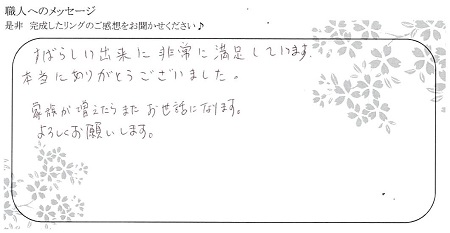 職人へのメッセージ
是非 完成したリングのご感想をお聞かせください♪
すばらしい出来に非常に満足しています。
本当にありがとうございました。
家族が増えたらまたお世話になります。
よろしくお願いします。